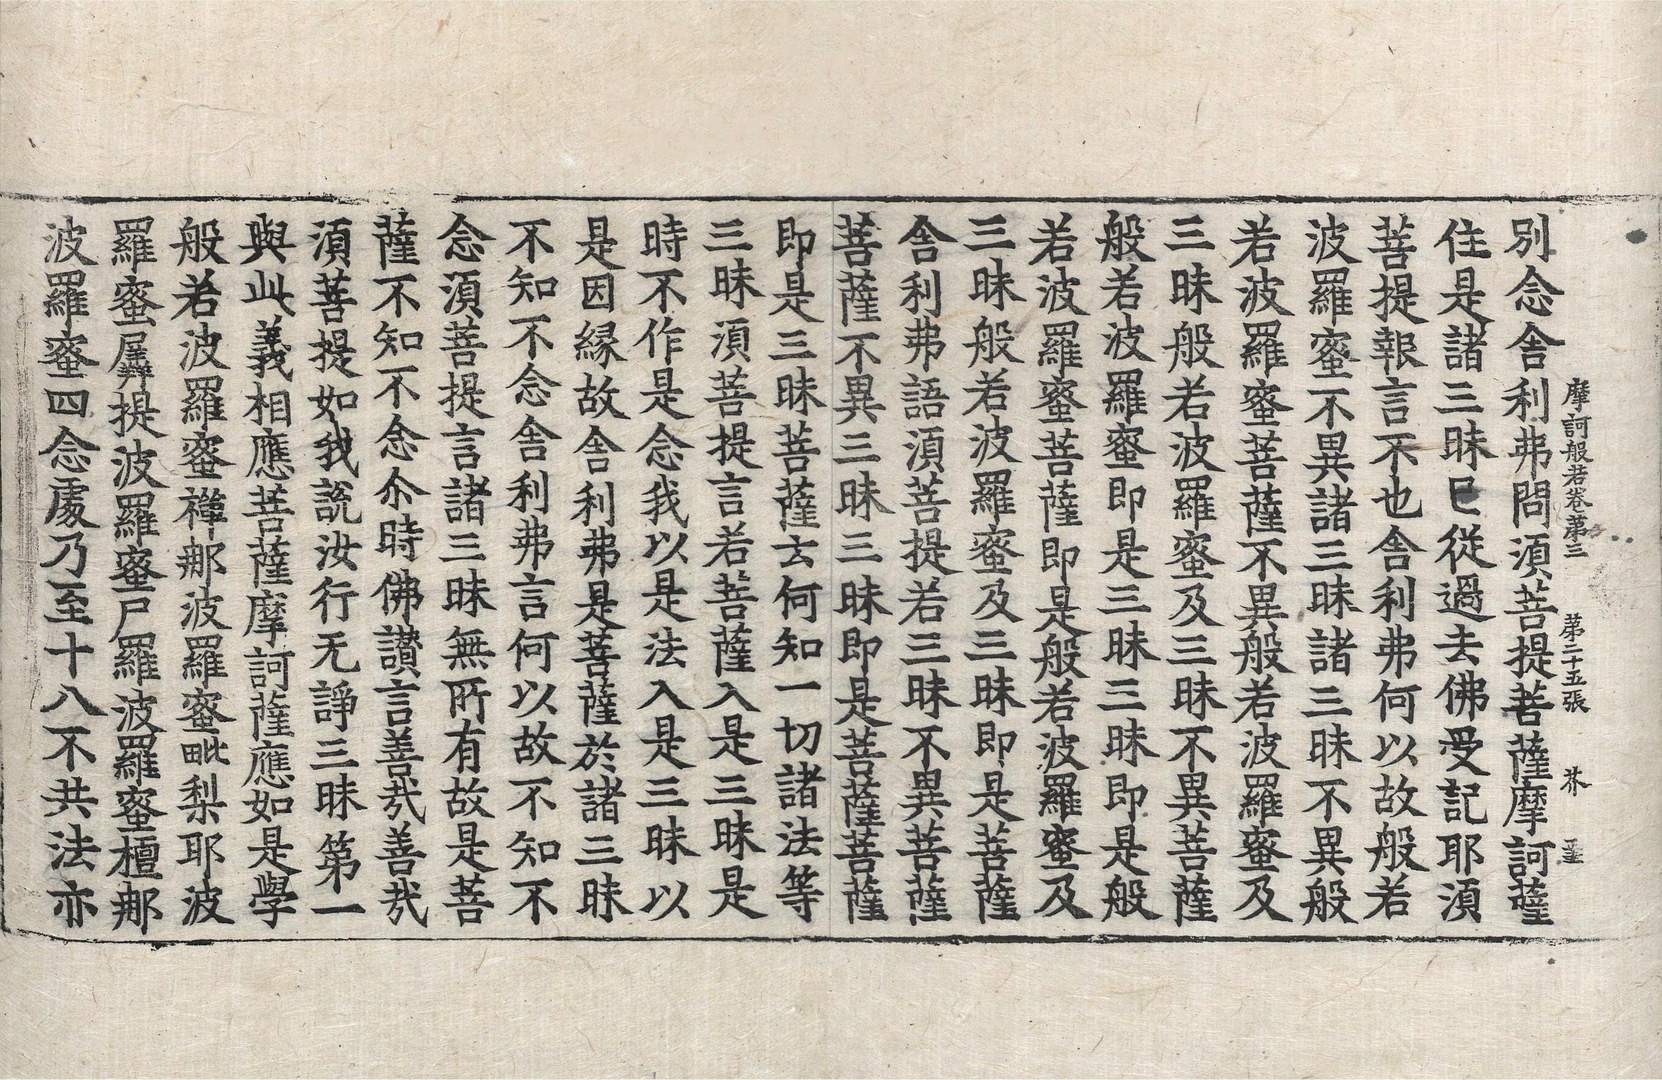 摩訶般若卷第三 第二十五張 芥
別念舎利弗問湏菩提菩薩摩訶薩
住是諸三昧已從過去佛受記耶湏
菩提報言不也舎利弗何以故般若
波羅蜜不異諸三昧諸三昧不異般
若波羅蜜菩薩不異般若波羅蜜及
三昧般若波羅蜜及三昧不異菩薩
般若波羅蜜即是三昧三昧即是般
若波羅蜜菩薩即是般若波羅蜜及
三昧般若波羅蜜及三昧即是菩薩
舎利弗語湏菩提若三昧不異菩薩
菩薩不異三昧三昧即是菩薩菩薩
即是三昧菩薩云何知一切諸法等
三昧湏菩提言若菩薩入是三昧是
時不作是念我以是法入是三昧以
是因縁故舎利弗是菩薩於諸三昧
不知不念舎利弗言何以故不知不
念湏菩提言諸三昧無所有故是菩
薩不知不念尒時佛讃言善哉善哉
湏菩提如我說汝行无諍三昧第一
與此義相應菩薩摩訶薩應如是學
般若波羅蜜禪那波羅蜜毗梨耶波
羅蜜羼提波羅蜜尸羅波羅蜜檀那
波羅蜜四念處乃至十八不共法亦